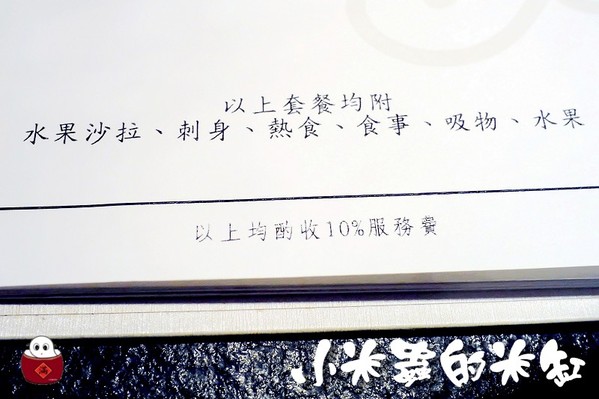 以上套餐均附
水果沙拉、刺身、熱食、食事、吸物、水果
以上均酌收10%服務費
小米蟲的米缸